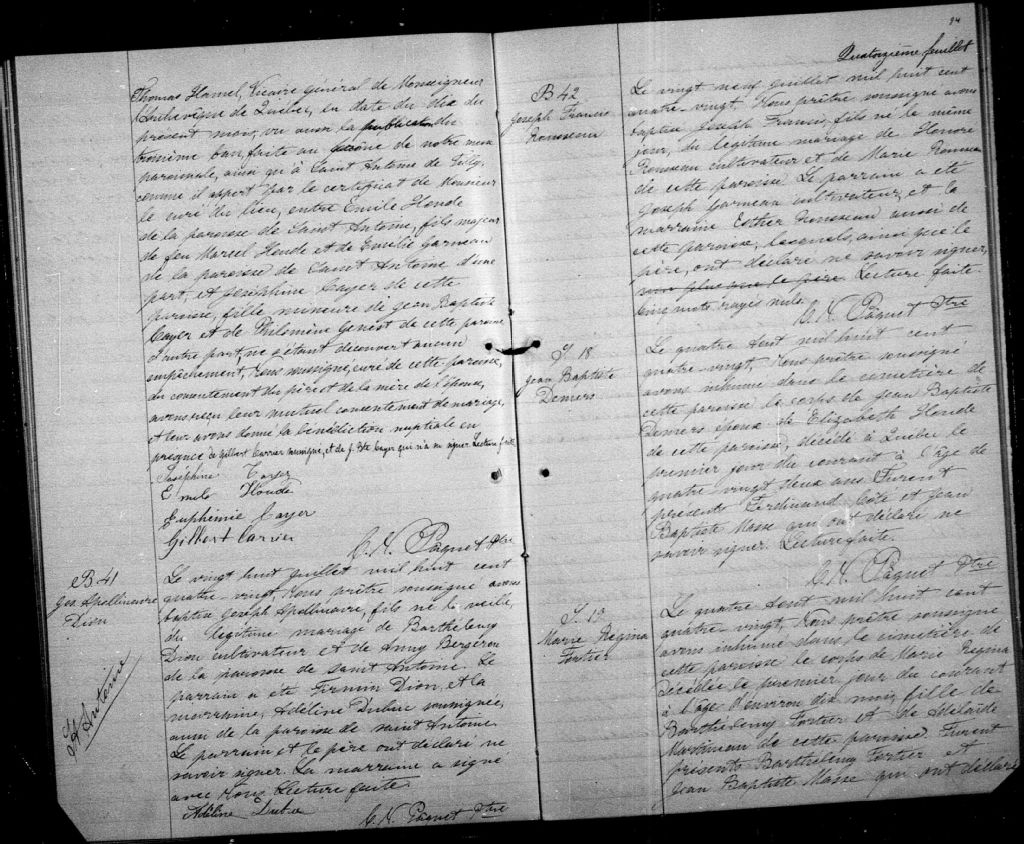 Thomas Hamel, Vicaire Général de Monseigneur
l'Archevêque de Québec, en date du dix du
présent mois, vu aussi la publication du
troisième ban, faite au prône de notre messe
paroissiale, ainsi qu'à Saint Antoine de Tilly,
comme il appert par le certificat de Monsieur
le curé du lieu, entre Emile Houde
de la paroisse de Saint Antoine, fils majeur
de feu Marcel Houde et de Emelie Garneau
de la paroisse de Saint Antoine d'une
part, et Joséphine Cayer de cette
paroisse, fille mineure de Jean Baptiste
Cayer et de Philomène Genest de cette paroisse
d'autre part, ne s'étant découvert aucun
empêchement, Nous soussigné, curé de cette paroisse,
du consentement du père et de la mère de l'épouse,
avons reçu leur mutuel consentement de mariage,
et leur avons donné la bénédiction nuptiale en
presence de Gilbert Carrier soussigné, et de J. Bte Cayer qui n'a su signer Lecture faite
Joséphine Cayer
Emile Houde
Euphémie Cayer
Gilbert Carrier
C. N. Paquet Ptre
B 41
Jos. Apollinaire
Dion
St Antoine
Le vingt huit Juillet mil huit cent
quatre vingt, Nous prêtre soussigné avons
baptisé Joseph Apollinaire, fils né la veille,
du légitime mariage de Barthelemy
Dion cultivateur et de Anny Bergeron
de la paroisse de saint Antoine. Le
parrain a été Firmin Dion, et la
marraine, Adéline Dubuc soussignée,
aussi de la paroisse de saint Antoine
Le parrain et le père ont déclaré ne
savoir signer. La marraine a signé
avec Nous Lecture faite.
Adéline
C. N. Paquet Ptre
94
Quatorzième feuillet
B 42
Joseph Francis
Rousseau
Le vingt neuf Juillet mil huit cent
quatre-vingt, Nous prêtre soussigné avons
baptisé Joseph Francis, fils né le même
jour, du légitime mariage de Honoré
Rousseau cultivateur et de Marie Rousseau
de cette paroisse. Le parrain a été
Joseph Garneau cultivateur, et la
marraine Esther Rousseau aussi de
cette paroisse, lesquels, ainsi que le
père, ont déclaré ne savoir signer,
non plus que le père. Lecture faite.
Cinq mots rayés nuls.
C. N. Paquet Ptre
S. 18
Jean Baptiste
Demers
Le quatre Aout mil huit cent
quatre-vingt, Nous prêtre soussigné
avons inhumé dans le cimetière de
cette paroisse le corps de Jean Baptiste
Demers époux de Elizabeth Houde
de cette paroisse, décédé à Québec le
premier jour du courant à l'âge de
quatre vingt deux ans. Furent
présents Ferdinand Côté et Jean
Baptiste Masse qui ont déclaré ne
savoir signer. Lecture faite.
C. N. Paquet Ptre
S. 19
Marie Regina
Fortier
Le quatre Aout mil huit cent
quatre vingt, Nous prêtre soussigné
avons inhumé dans le cimetière de
cette paroisse le corps de Marie Regina
décédée le premier jour du courant
à l'âge d'environ dix mois, fille de
Barthélemy Fortier et de Adelaide
Martineau de cette paroisse. Furent
présents Barthelemy Fortier et
Jean Baptiste Masse qui ont déclaré